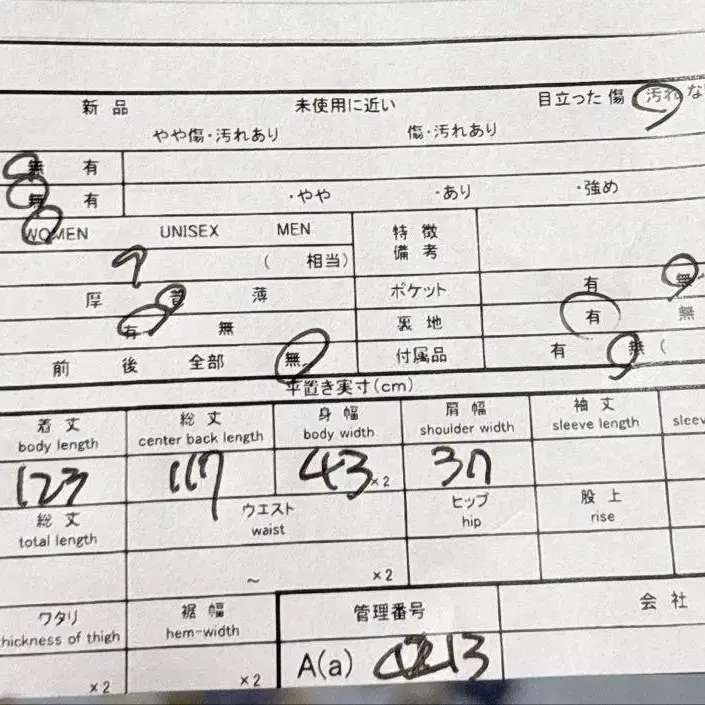 新品 未使用に近い 目立った傷 汚れな
やや傷・汚れあり 傷・汚れあり
無 有
無 有 ・やや ・あり ・強め
WOMEN UNISEX MEN 特徴
備考
( 相当)
厚 普 薄 ポケット 有 無
有 無 裏地 有 無
前 後 全部 無 付属品 有 無 (
平置き実寸(cm)
着丈 総丈 身幅 肩幅 袖丈
body length center back length body width shoulder width sleeve length sleev
123 117 43 ×2 37
総丈 ウエスト ヒップ 股上
total length waist hip rise
~ ×2
ワタリ 裾幅 管理番号 会社
hickness of thigh hem-width
×2 ×2 A(a)